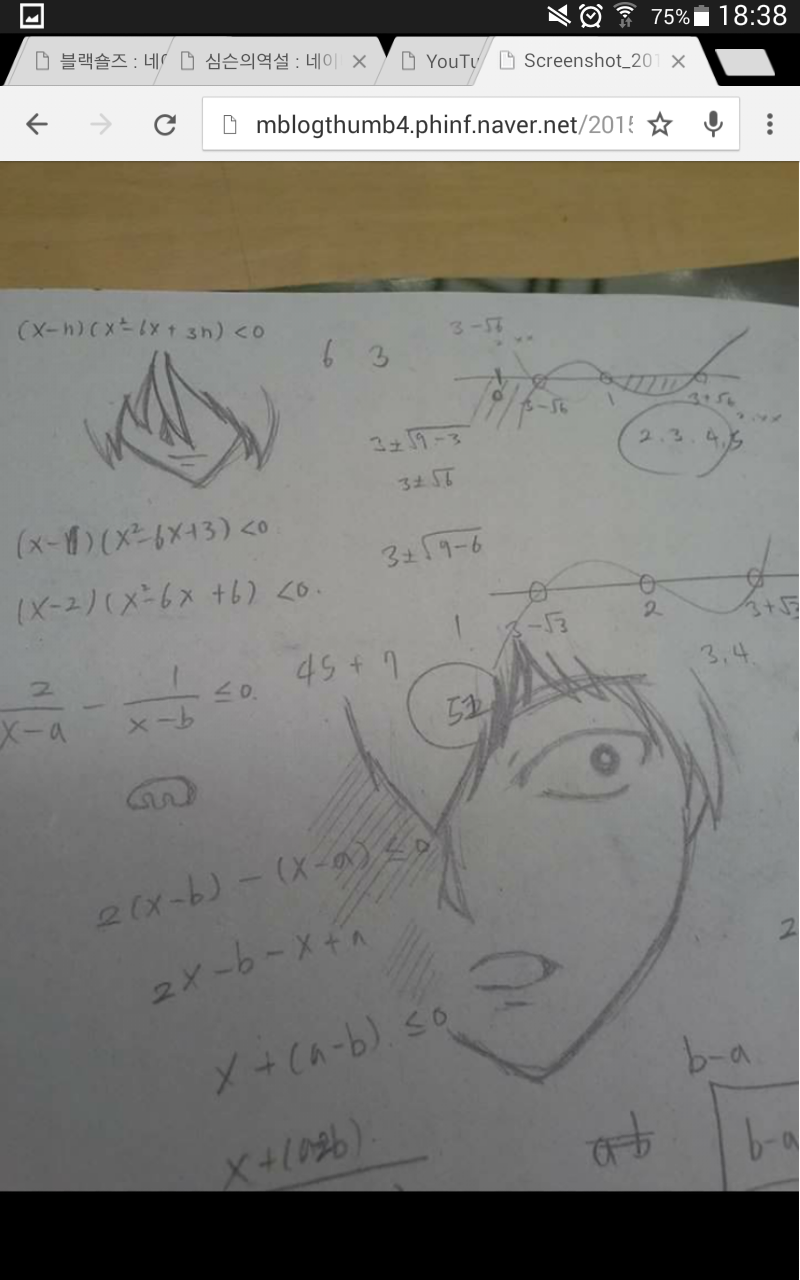 75% 18:38
블랙숄즈 : 네이 심슨의역설 : 네이 YouTu Screenshot_201
mblogthumb4.phinf.naver.net/2015
(x-n)(x²-6x+3n)<0
6 3
3-√6
0 3-√6 1 3+√6
2.3.4.5
3±√9-3
3±√6
(x-1)(x²-6x+3)<0
3±√9-6
(x-2)(x²-6x+6)<0.
3-√3 2 3+√3
1
3,4.
2/x-a - 1/x-b ≤0.
45+7
52
2(x-b)-(x-a)≤0
2x-b-x+a
2
x+(a-b).≤0
b-a
a-b
b-a